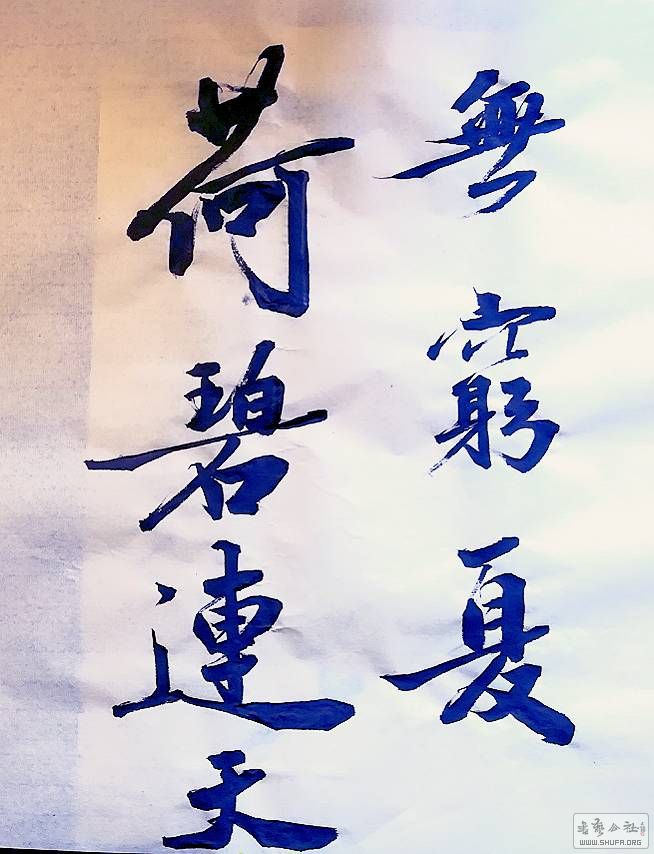 無窮夏
荷碧連天
书艺公社
WWW.SHUFA.ORG